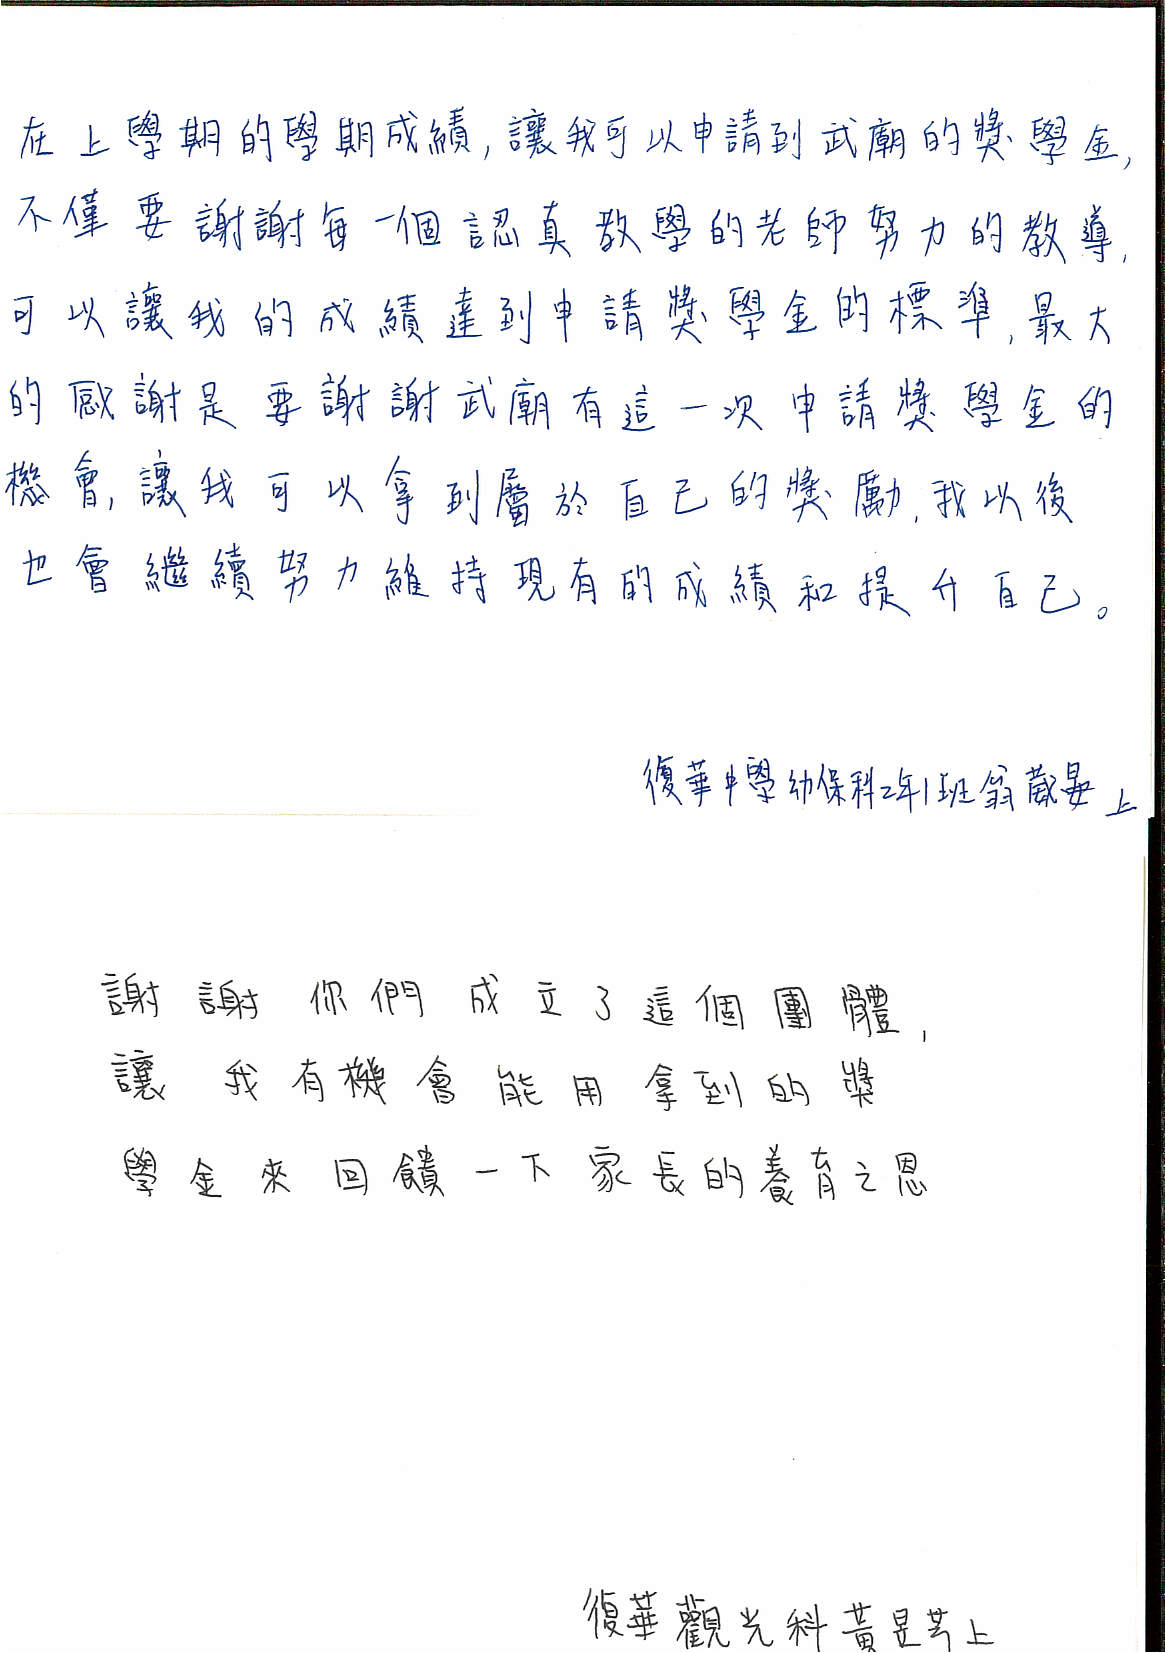 在上學期的學期成績,讓我可以申請到武廟的獎學金,
不僅要謝謝每一個認真教學的老師努力的教導,
可以讓我的成績達到申請獎學金的標準,最大
的感謝是要謝謝武廟有這一次申請獎學金的
機會,讓我可以拿到屬於自己的獎勵,我以後
也會繼續努力維持現有的成績和提升自己。
復華中學幼保科2年1班翁葳晏上
謝謝你們成立了這個團體,
讓我有機會能用拿到的獎
學金來回饋一下家長的養育之恩
復華觀光科黃昱芩上